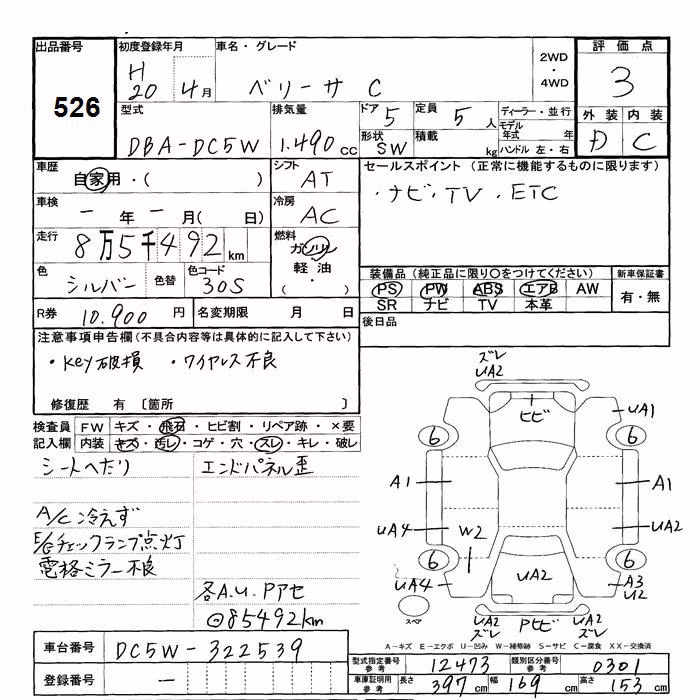 出品番号
526
初度登録年月
H
20 4月
車名・グレード
ベリーサ C
2WD
・
4WD
評価点
3
外装 内装
D C
型式
DBA-DC5W
排気量
1.490cc
ドア 5
定員 5人
形状 SW
積載 kg
ディーラー・並行
モデル
年式 年
ハンドル 左・右
車歴
自家用・( )
シフト
AT
セールスポイント (正常に機能するものに限ります)
・ナビ・TV ・ETC
車検
ー年ー月( 日)
冷房
AC
走行
8万5千492km
燃料
ガソリン
軽油
( ・ )
色
シルバー
色替
色コード
30S
装備品 (純正品に限り〇をつけてください)
PS PW ABS エアB AW
SR ナビ TV 本革
新車保証書
有・無
R券 10.900円
名変期限 月 日
後日品
注意事項申告欄 (不具合内容等は具体的に記入して下さい)
・key破損 ・ワイヤレス不良
修復歴 有 〔箇所 〕
検査員 FW キズ・飛石・ヒビ割・リペア跡・×要
記入欄 内装 キズ・汚レ・コゲ・穴・スレ・キレ・破レ
シートへたり
エンドパネル歪
A/C冷えず
E/Gチェックランプ点灯
電格ミラー不良
各A.U.Pアセ
⊖85492km
ズレ
UA2
ヒビ
UA1
6 6
A1 A1
UA4 W2 UA2
6 6
UA4 UA2 A3
U2
スペア
UA2
ズレ
Pヒビ
UA2
ズレ
A−キズ E−エクボ U−凹み W−補修跡 S−サビ C−腐食 XX−交換済
車台番号 DC5W-322539
登録番号 ー
型式指定番号
参考
12473
類別区分番号
参考
0301
車庫証明用
参考
長さ 397cm 幅 169cm 高さ 153cm